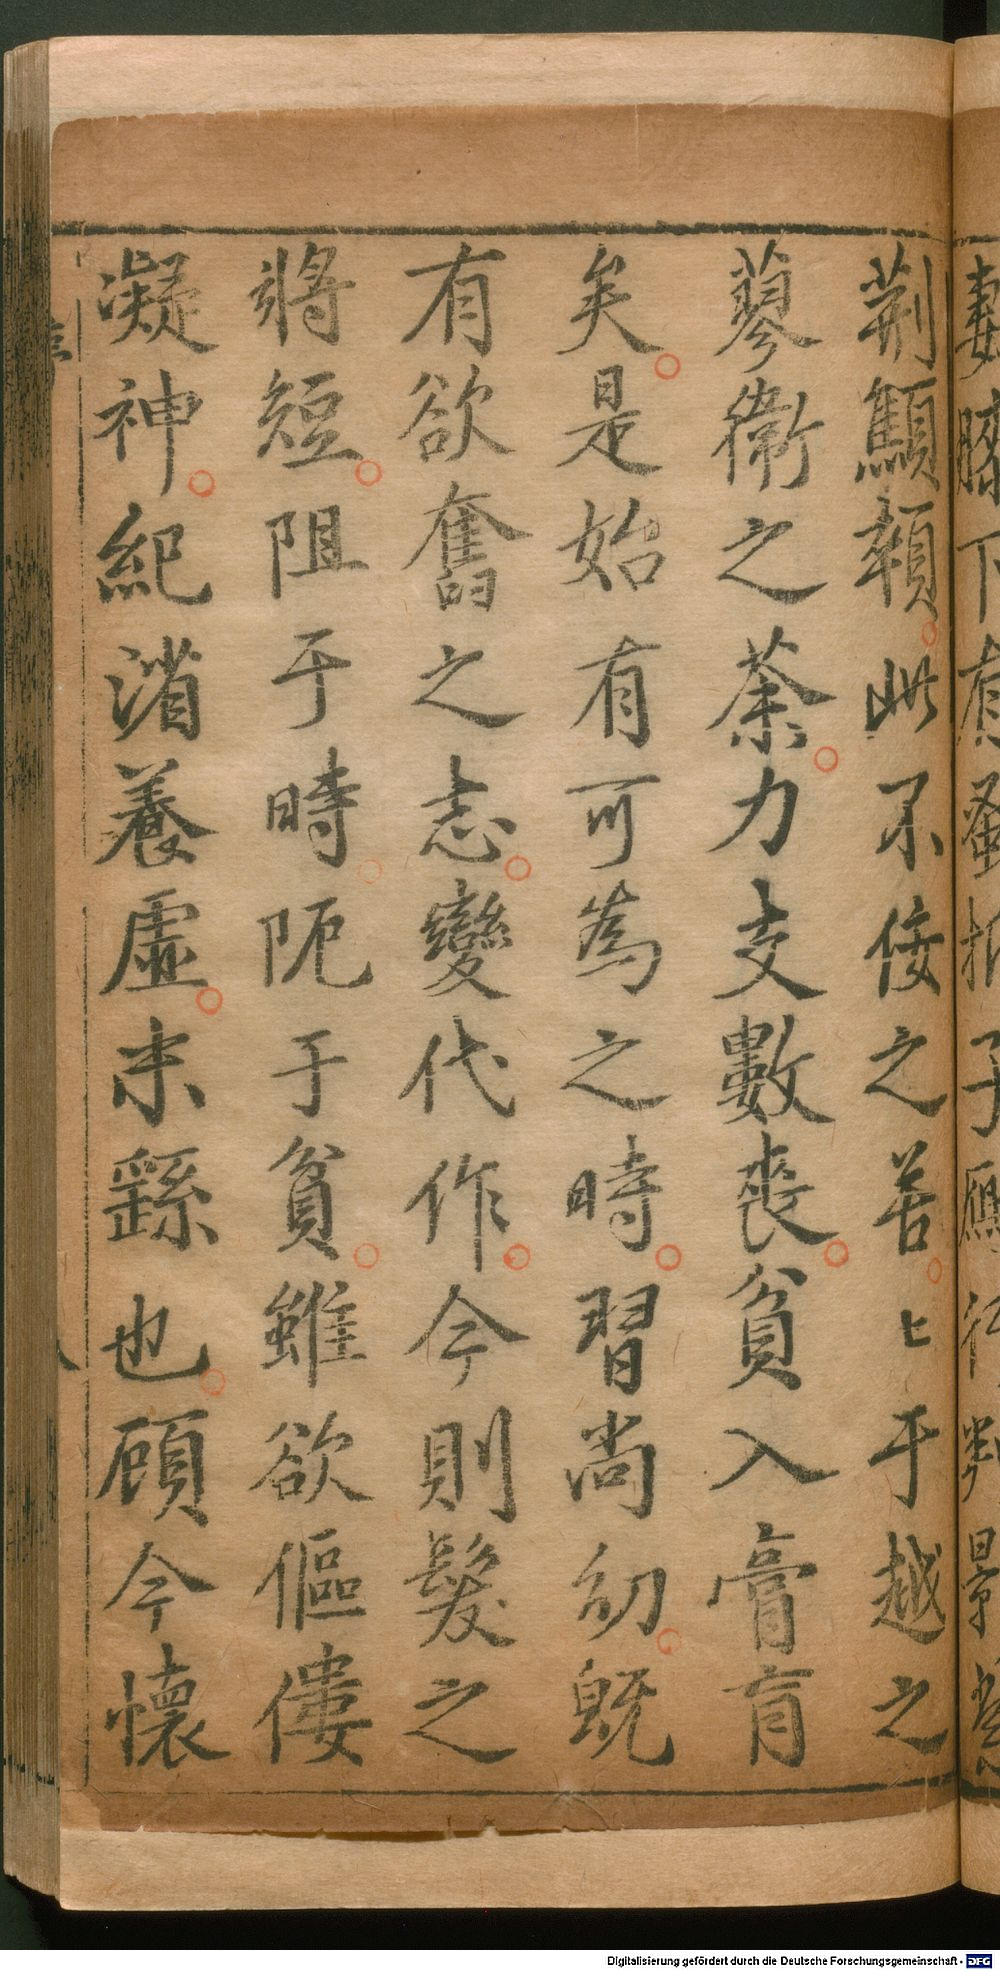 荆顒頛。此不佞之苦。匕于越之
蓼衞之荼。力支數喪。貧入膏肓
矣。是始有可爲之時。習尚幼。旣
有欲奮之志。變代作。今則髮之
將短。阻于時。阨于貧。雖欲傴僂
凝神。紀渻養虛。未繇也。顧今懷
Digitalisierung gefördert durch die Deutsche Forschungsgemeinschaft - DFG